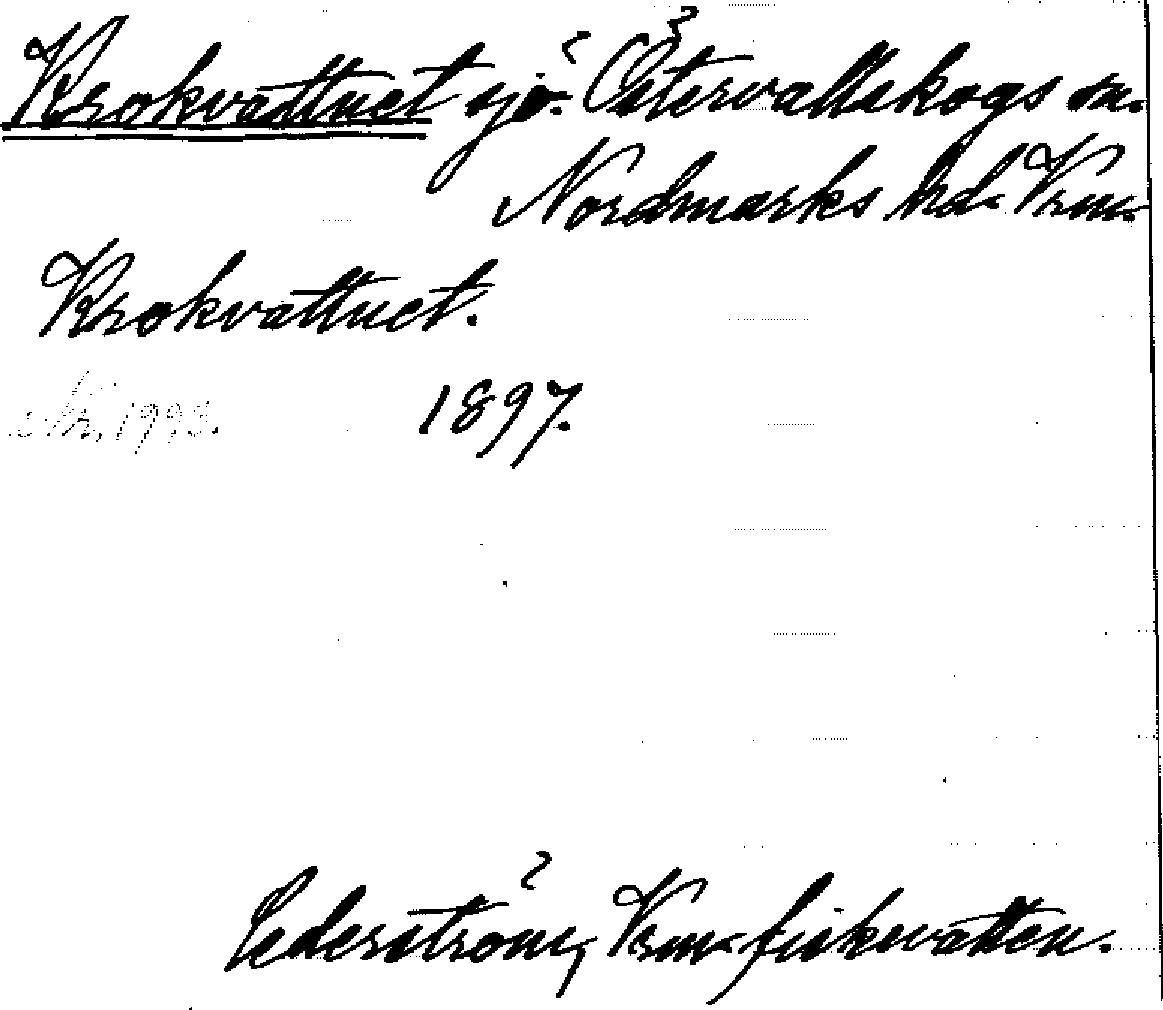 Krokvattnet sjö. Östervallskogs sn.
Nordmarks hd. Vrm.
Krokvattnet.
1897.
Cederström, Vrm. fiskvatten.